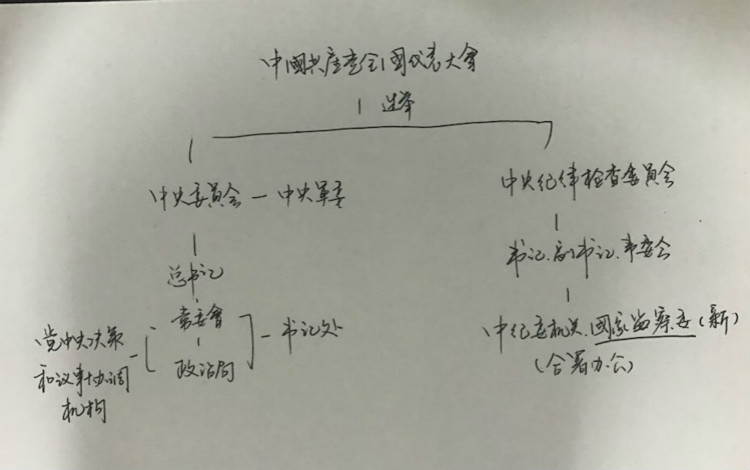 中國共产党全国代表大會
选举
中央委員会 — 中央軍委
中央纪律检查委員会
总书记
书记、副书记、常委会
常委會
政治局
书记处
党中央决策
和议事协调
机构
中纪委机关、國家监察委(新)
(合署办公)